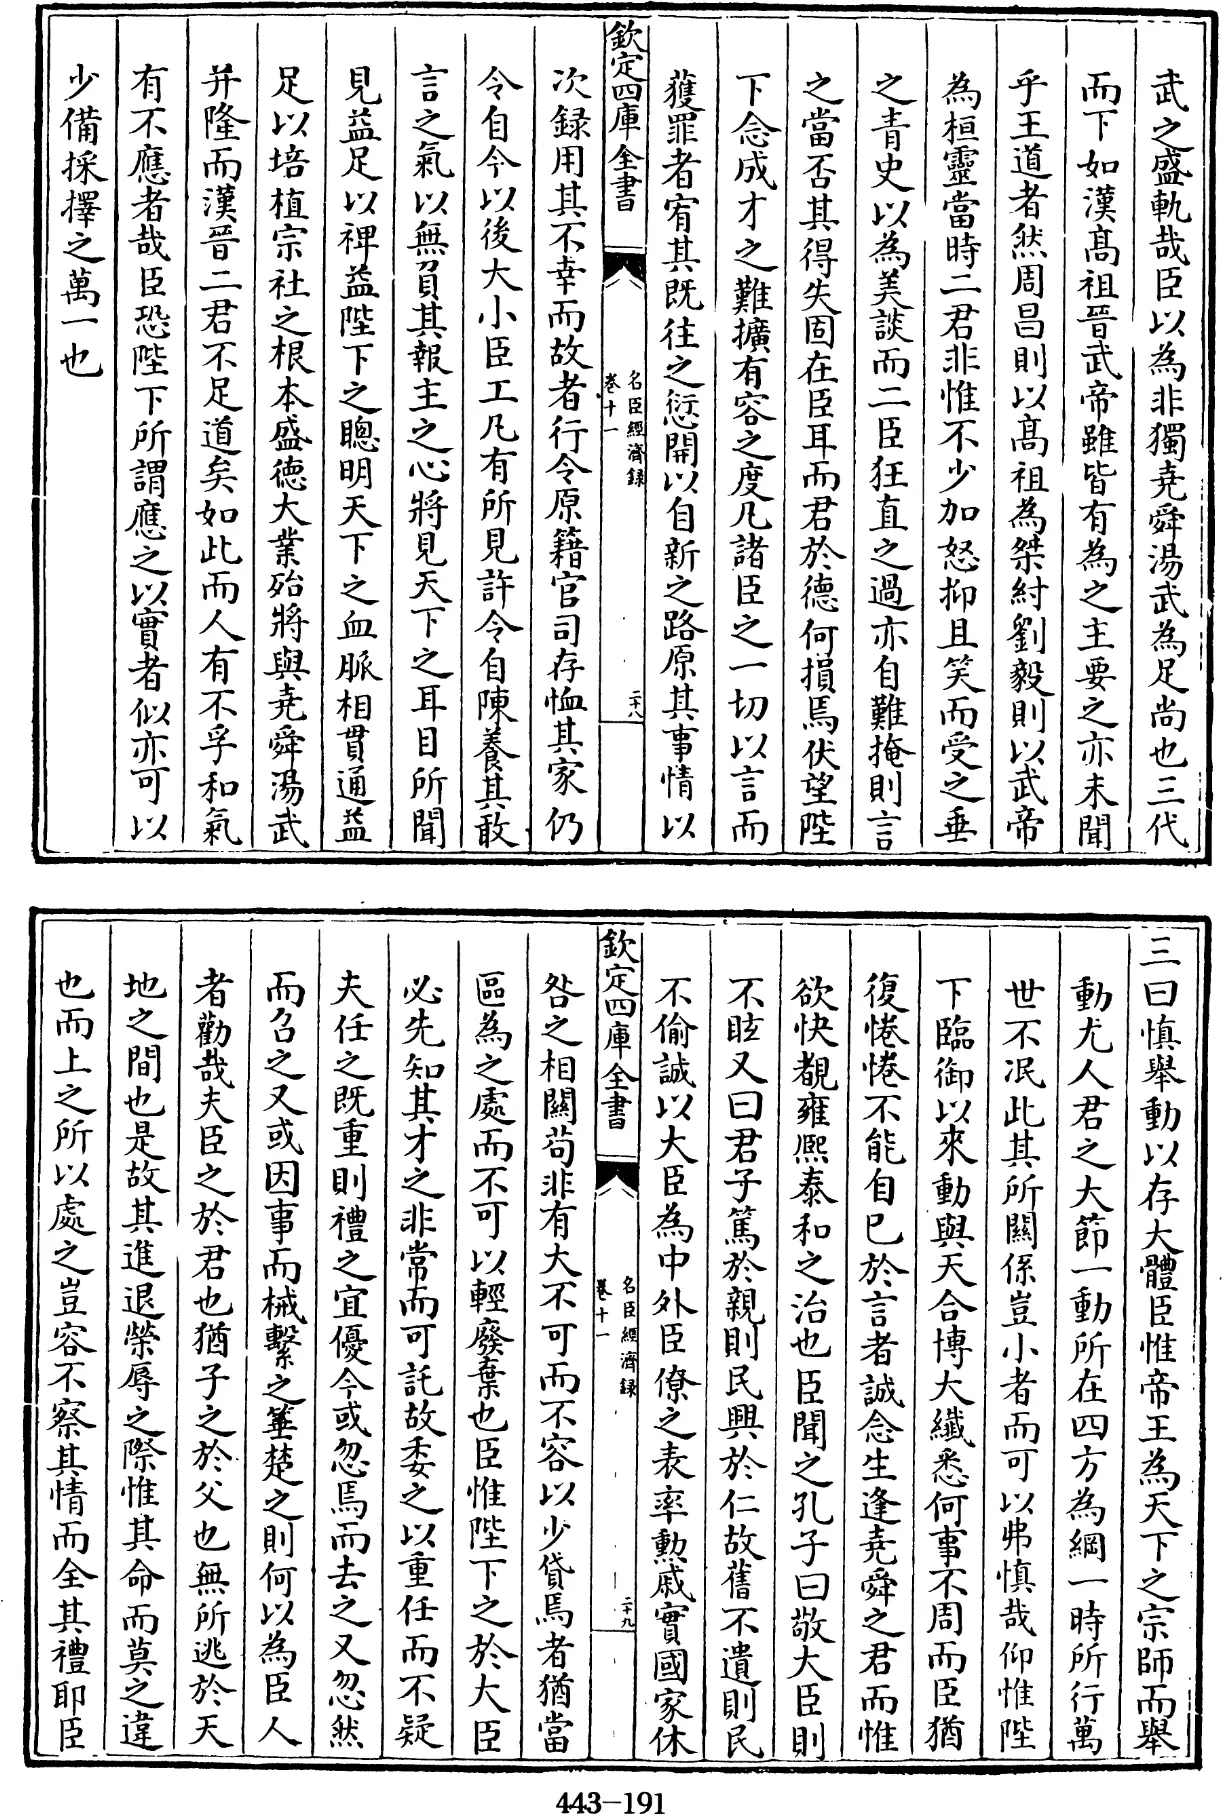 武之盛軌哉臣以為非獨堯舜湯武為足尚也三代
而下如漢髙祖晉武帝雖皆有為之主要之亦未聞
乎王道者然周昌則以髙祖為桀紂劉毅則以武帝
為桓靈當時二君非惟不少加怒抑且笑而受之垂
之青史以為美談而二臣狂直之過亦自難掩則言
之當否其得失固在臣耳而君於德何損焉伏望陛
下念成才之難擴有容之度凡諸臣之一切以言而
獲罪者宥其既往之愆開以自新之路原其事情以
欽定四庫全書
名臣經濟録
卷十一
二十八
次録用其不幸而故者行令原籍官司存恤其家仍
令自今以後大小臣工凡有所見許令自陳養其敢
言之氣以無負其報主之心將見天下之耳目所聞
見益足以裨益陛下之聰明天下之血脈相貫通益
足以培植宗社之根本盛德大業殆將與堯舜湯武
并隆而漢晉二君不足道矣如此而人有不孚和氣
有不應者哉臣恐陛下所謂應之以實者似亦可以
少備採擇之萬一也
三曰慎舉動以存大體臣惟帝王為天下之宗師而舉
動尤人君之大節一動所在四方為綱一時所行萬
世不泯此其所關係豈小者而可以弗慎哉仰惟陛
下臨御以來動與天合博大纎悉何事不周而臣猶
復惓惓不能自已於言者誠念生逢堯舜之君而惟
欲快覩雍熙泰和之治也臣聞之孔子曰敬大臣則
不眩又曰君子篤於親則民興於仁故舊不遺則民
不偷誠以大臣為中外臣僚之表率勲戚實國家休
欽定四庫全書
名臣經濟録
卷十一
二十九
咎之相關茍非有大不可而不容以少貸焉者猶當
區為之處而不可以輕廢棄也臣惟陛下之於大臣
必先知其才之非常而可託故委之以重任而不疑
夫任之既重則禮之宜優今或忽焉而去之又忽然
而召之又或因事而械繫之箠楚之則何以為臣人
者勸哉夫臣之於君也猶子之於父也無所逃於天
地之間也是故其進退榮辱之際惟其命而莫之違
也而上之所以處之豈容不察其情而全其禮耶臣
443-191